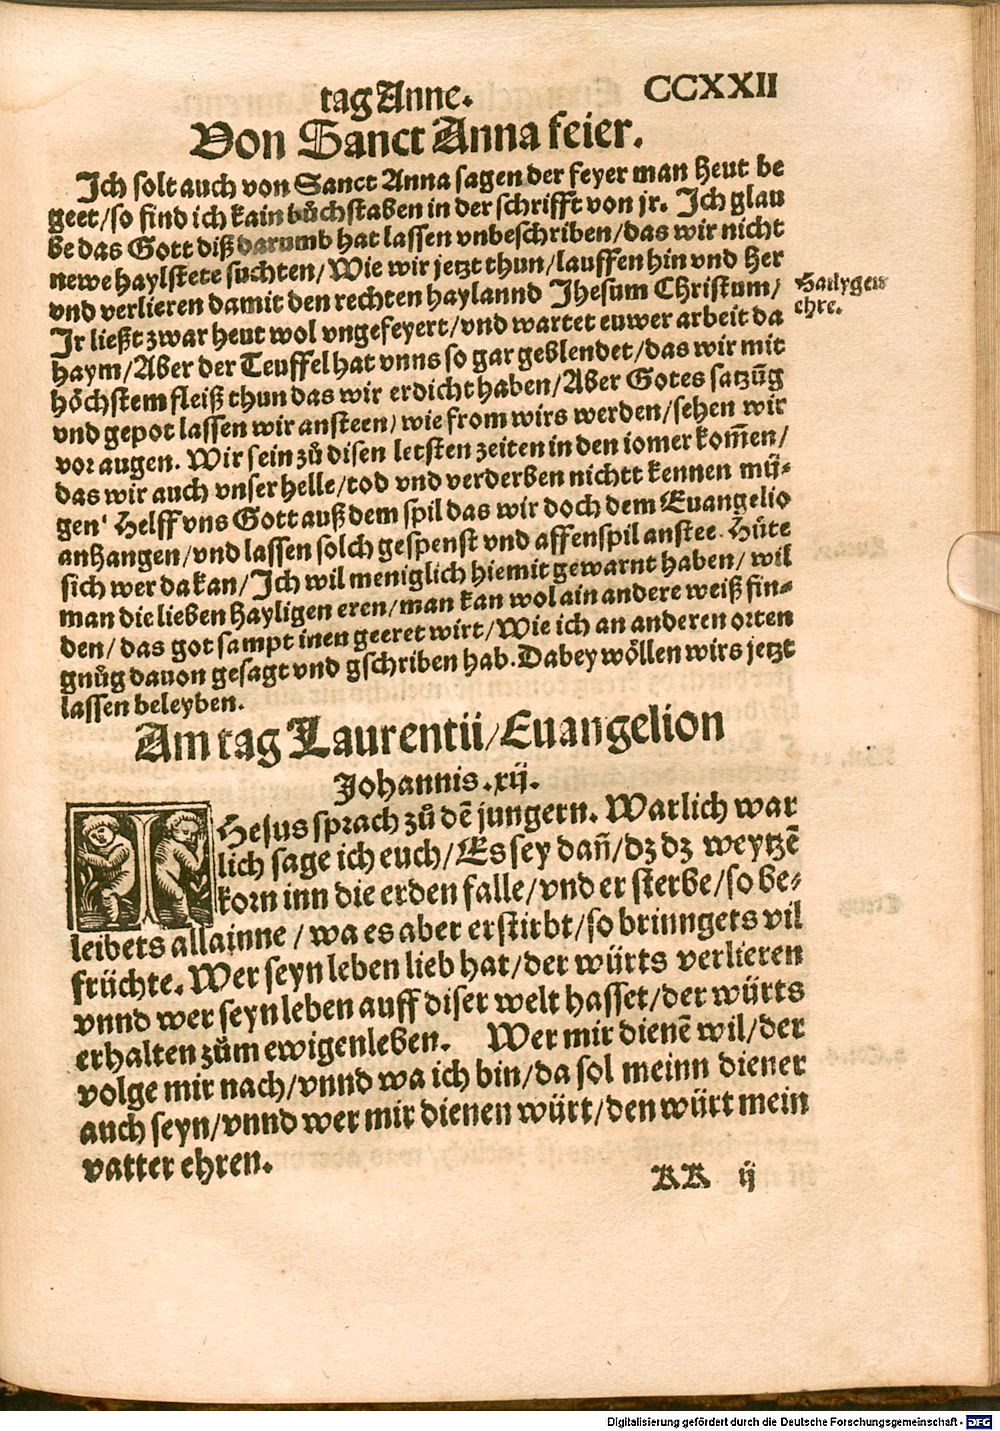 tag Anne. CCXXII
Von Sanct Anna feier.
Ich solt auch von Sanct Anna sagen der feyer man heut be
geet/so find ich kain bůchstaben in der schrifft von jr. Ich glau
be das Gott diß darumb hat lassen vnbeschriben/das wir nicht
newe haylstete suchten/Wie wir jetzt thun/lauffen hin vnd her
vnd verlieren damit den rechten haylannd Jhesum Christum/
Hailygen
ehre.
Ir ließt zwar heut wol vngefeyert/vnd wartet euwer arbeit da
haym/Aber der Teuffel hat vnns so gar geblendet/das wir mit
höchstem fleiß thun das wir erdicht haben/Aber Gotes satzūg
vnd gepot lassen wir ansteen/wie from wirs werden/sehen wir
vor augen. Wir sein zů disen letsten zeiten in den iomer kom̄en/
das wir auch vnser helle/tod vnd verderben nichtt kennen mü⸗
gen' Helff vns Gott auß dem spil das wir doch dem Euangelio
anhangen/vnd lassen solch gespenst vnd affenspil anstee. Hüte
sich wer da kan/Ich wil meniglich hiemit gewarnt haben/wil
man die lieben hayligen eren/man kan wol ain andere weiß fin⸗
den/das got sampt inen geeret wirt/Wie ich an anderen orten
gnůg dauon gesagt vnd gschriben hab. Dabey wöllen wirs jetzt
lassen beleyben.
Am tag Laurentii/Euangelion
Johannis.xij.
IHesus sprach zů dē jungern. Warlich war
lich sage ich euch/Es sey dañ/dz dz weytzē
korn inn die erden falle/vnd er sterbe/so be⸗
leibets allainne/wa es aber erstirbt/so brinngets vil
früchte. Wer seyn leben lieb hat/der würts verlieren
vnnd wer seyn leben auff diser welt hasset/der würts
erhalten zům ewigenleben. Wer mir dienē wil/der
volge mir nach/vnnd wa ich bin/da sol meinn diener
auch seyn/vnnd wer mir dienen würt/den würt mein
vatter ehren.
KK ij
Digitalisierung gefördert durch die Deutsche Forschungsgemeinschaft - DFG